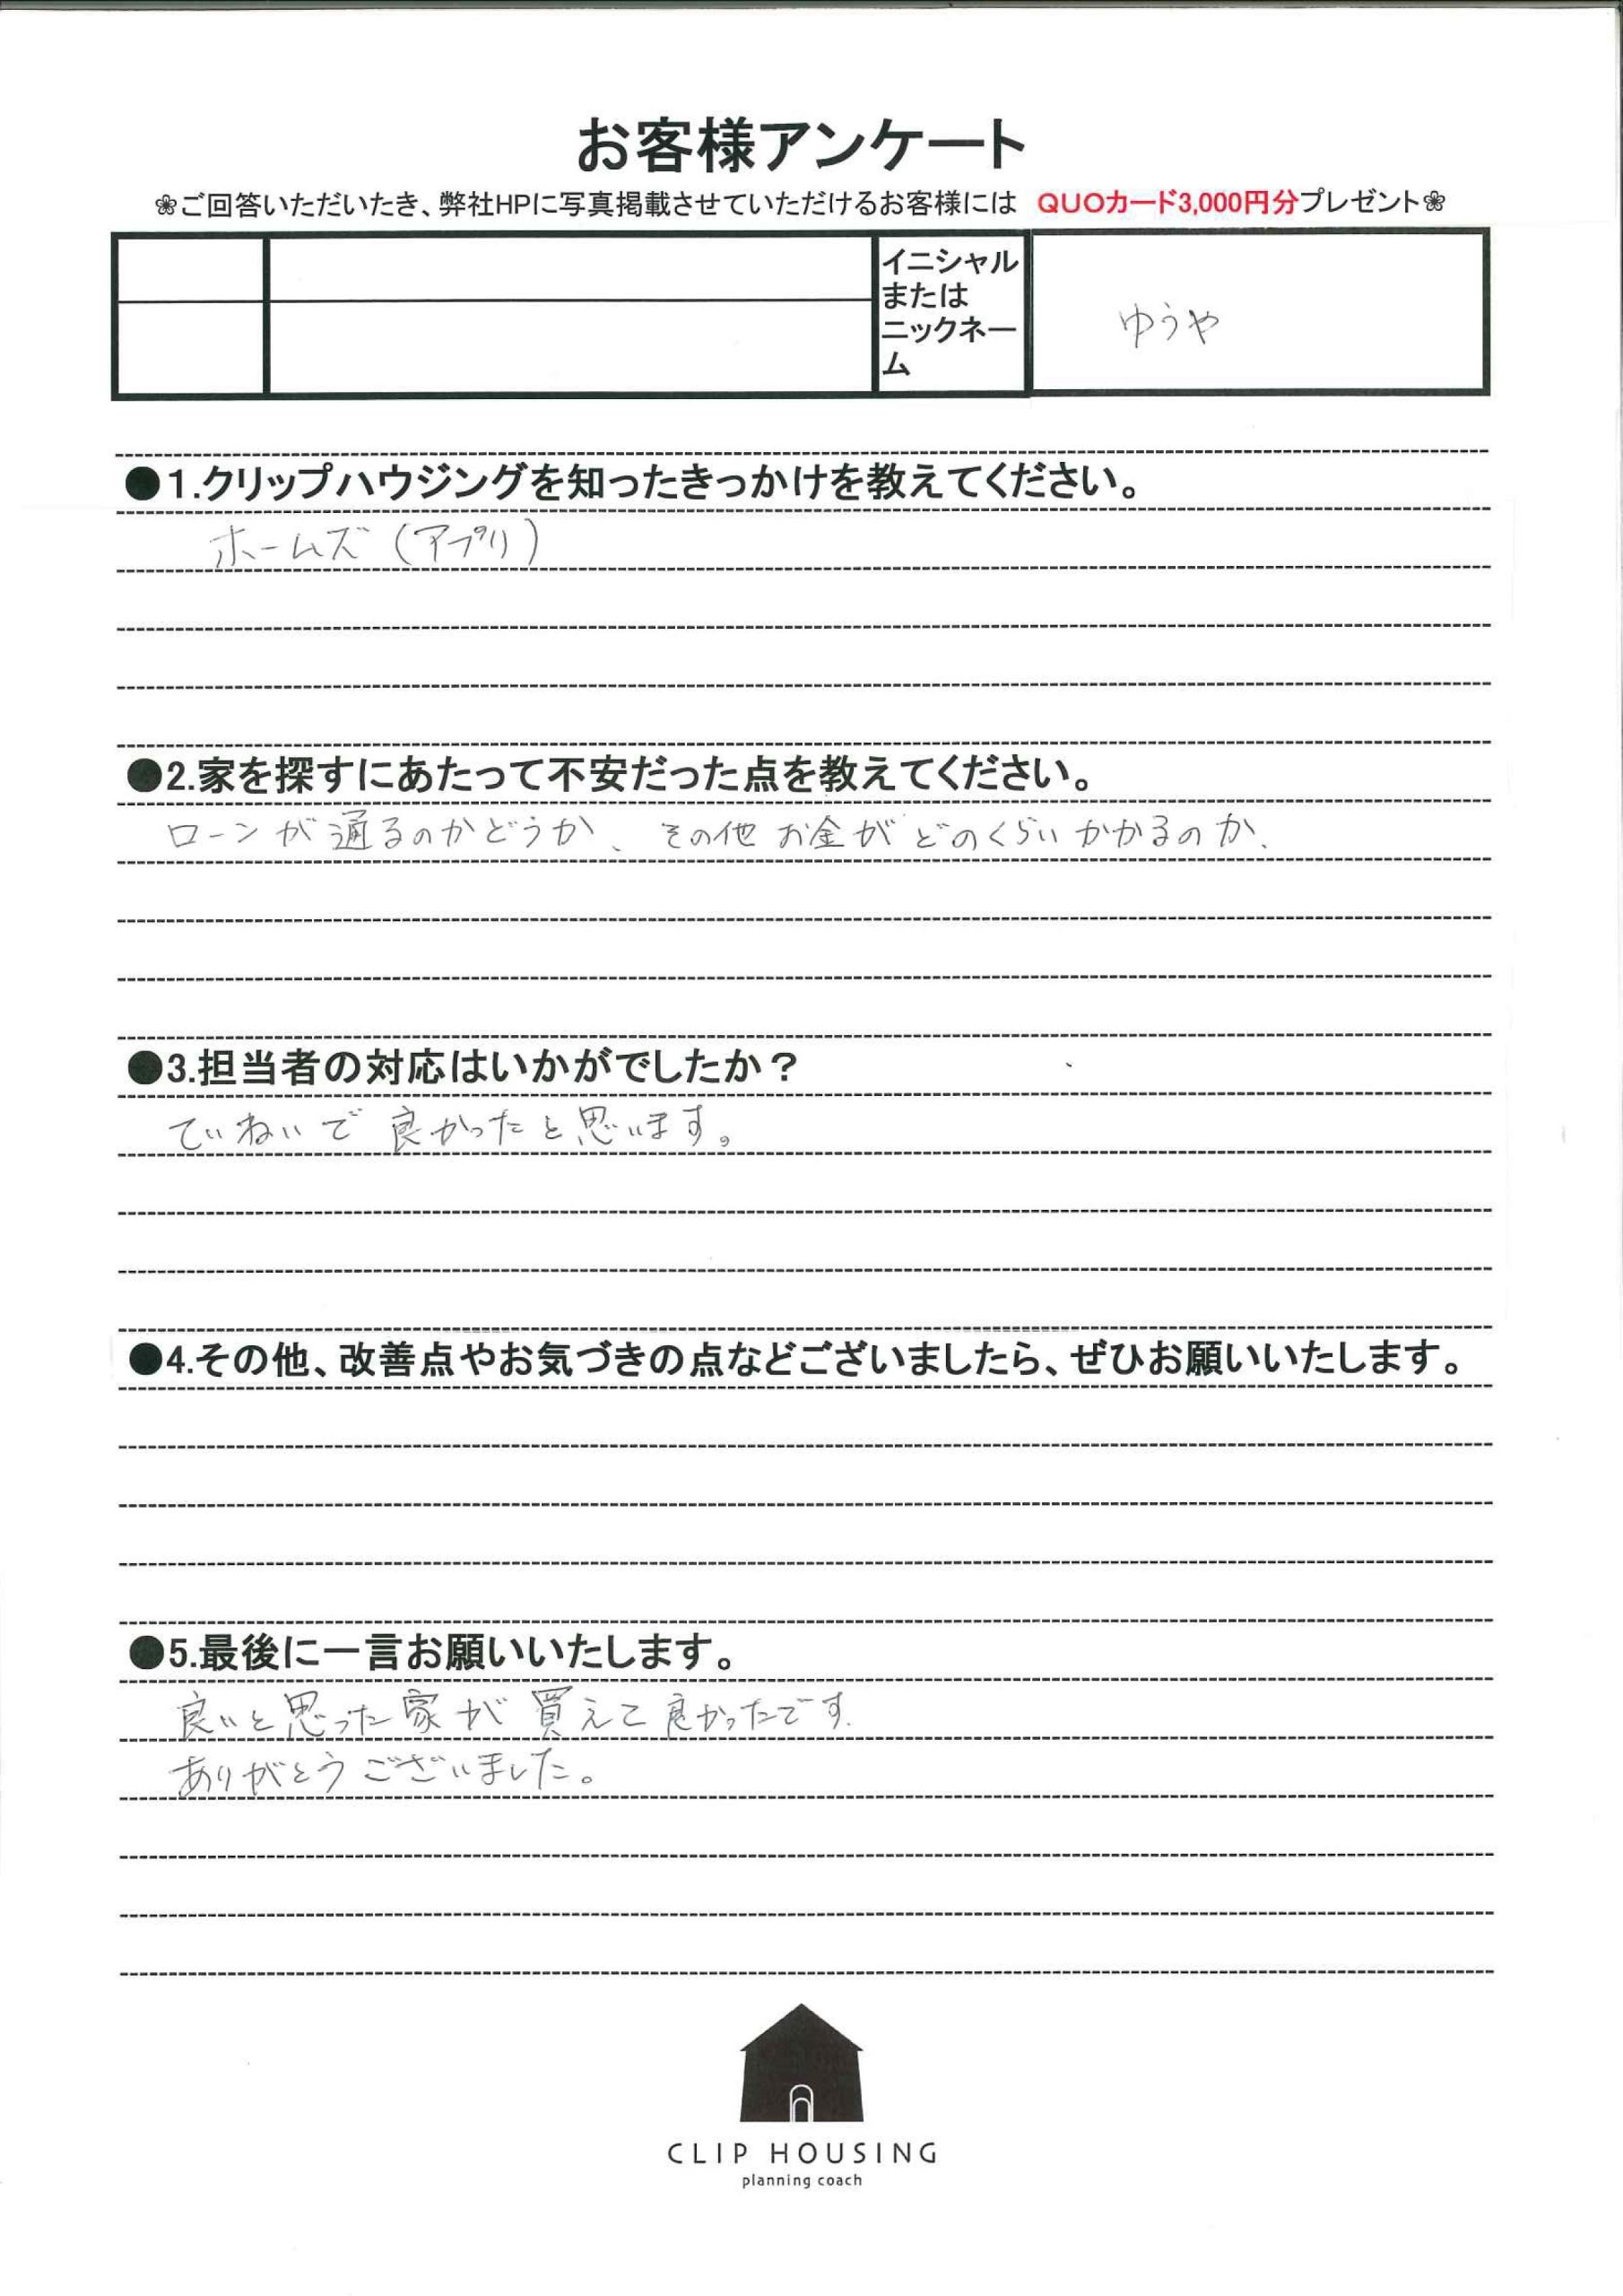 お客様アンケート
❀ご回答いただいたき、弊社HPに写真掲載させていただけるお客様には QUOカード3,000円分プレゼント❀
イニシャル
または
ニックネー
ム
ゆうや
●1.クリップハウジングを知ったきっかけを教えてください。
ホームズ（アプリ）
●2.家を探すにあたって不安だった点を教えてください。
ローンが通るのかどうか、その他お金がどのくらいかかるのか、
●3.担当者の対応はいかがでしたか？
ていねいで良かったと思います。
●4.その他、改善点やお気づきの点などございましたら、ぜひお願いいたします。
●5.最後に一言お願いいたします。
良いと思った家が買えて良かったです.
ありがとうございました。
CLIP HOUSING
planning coach